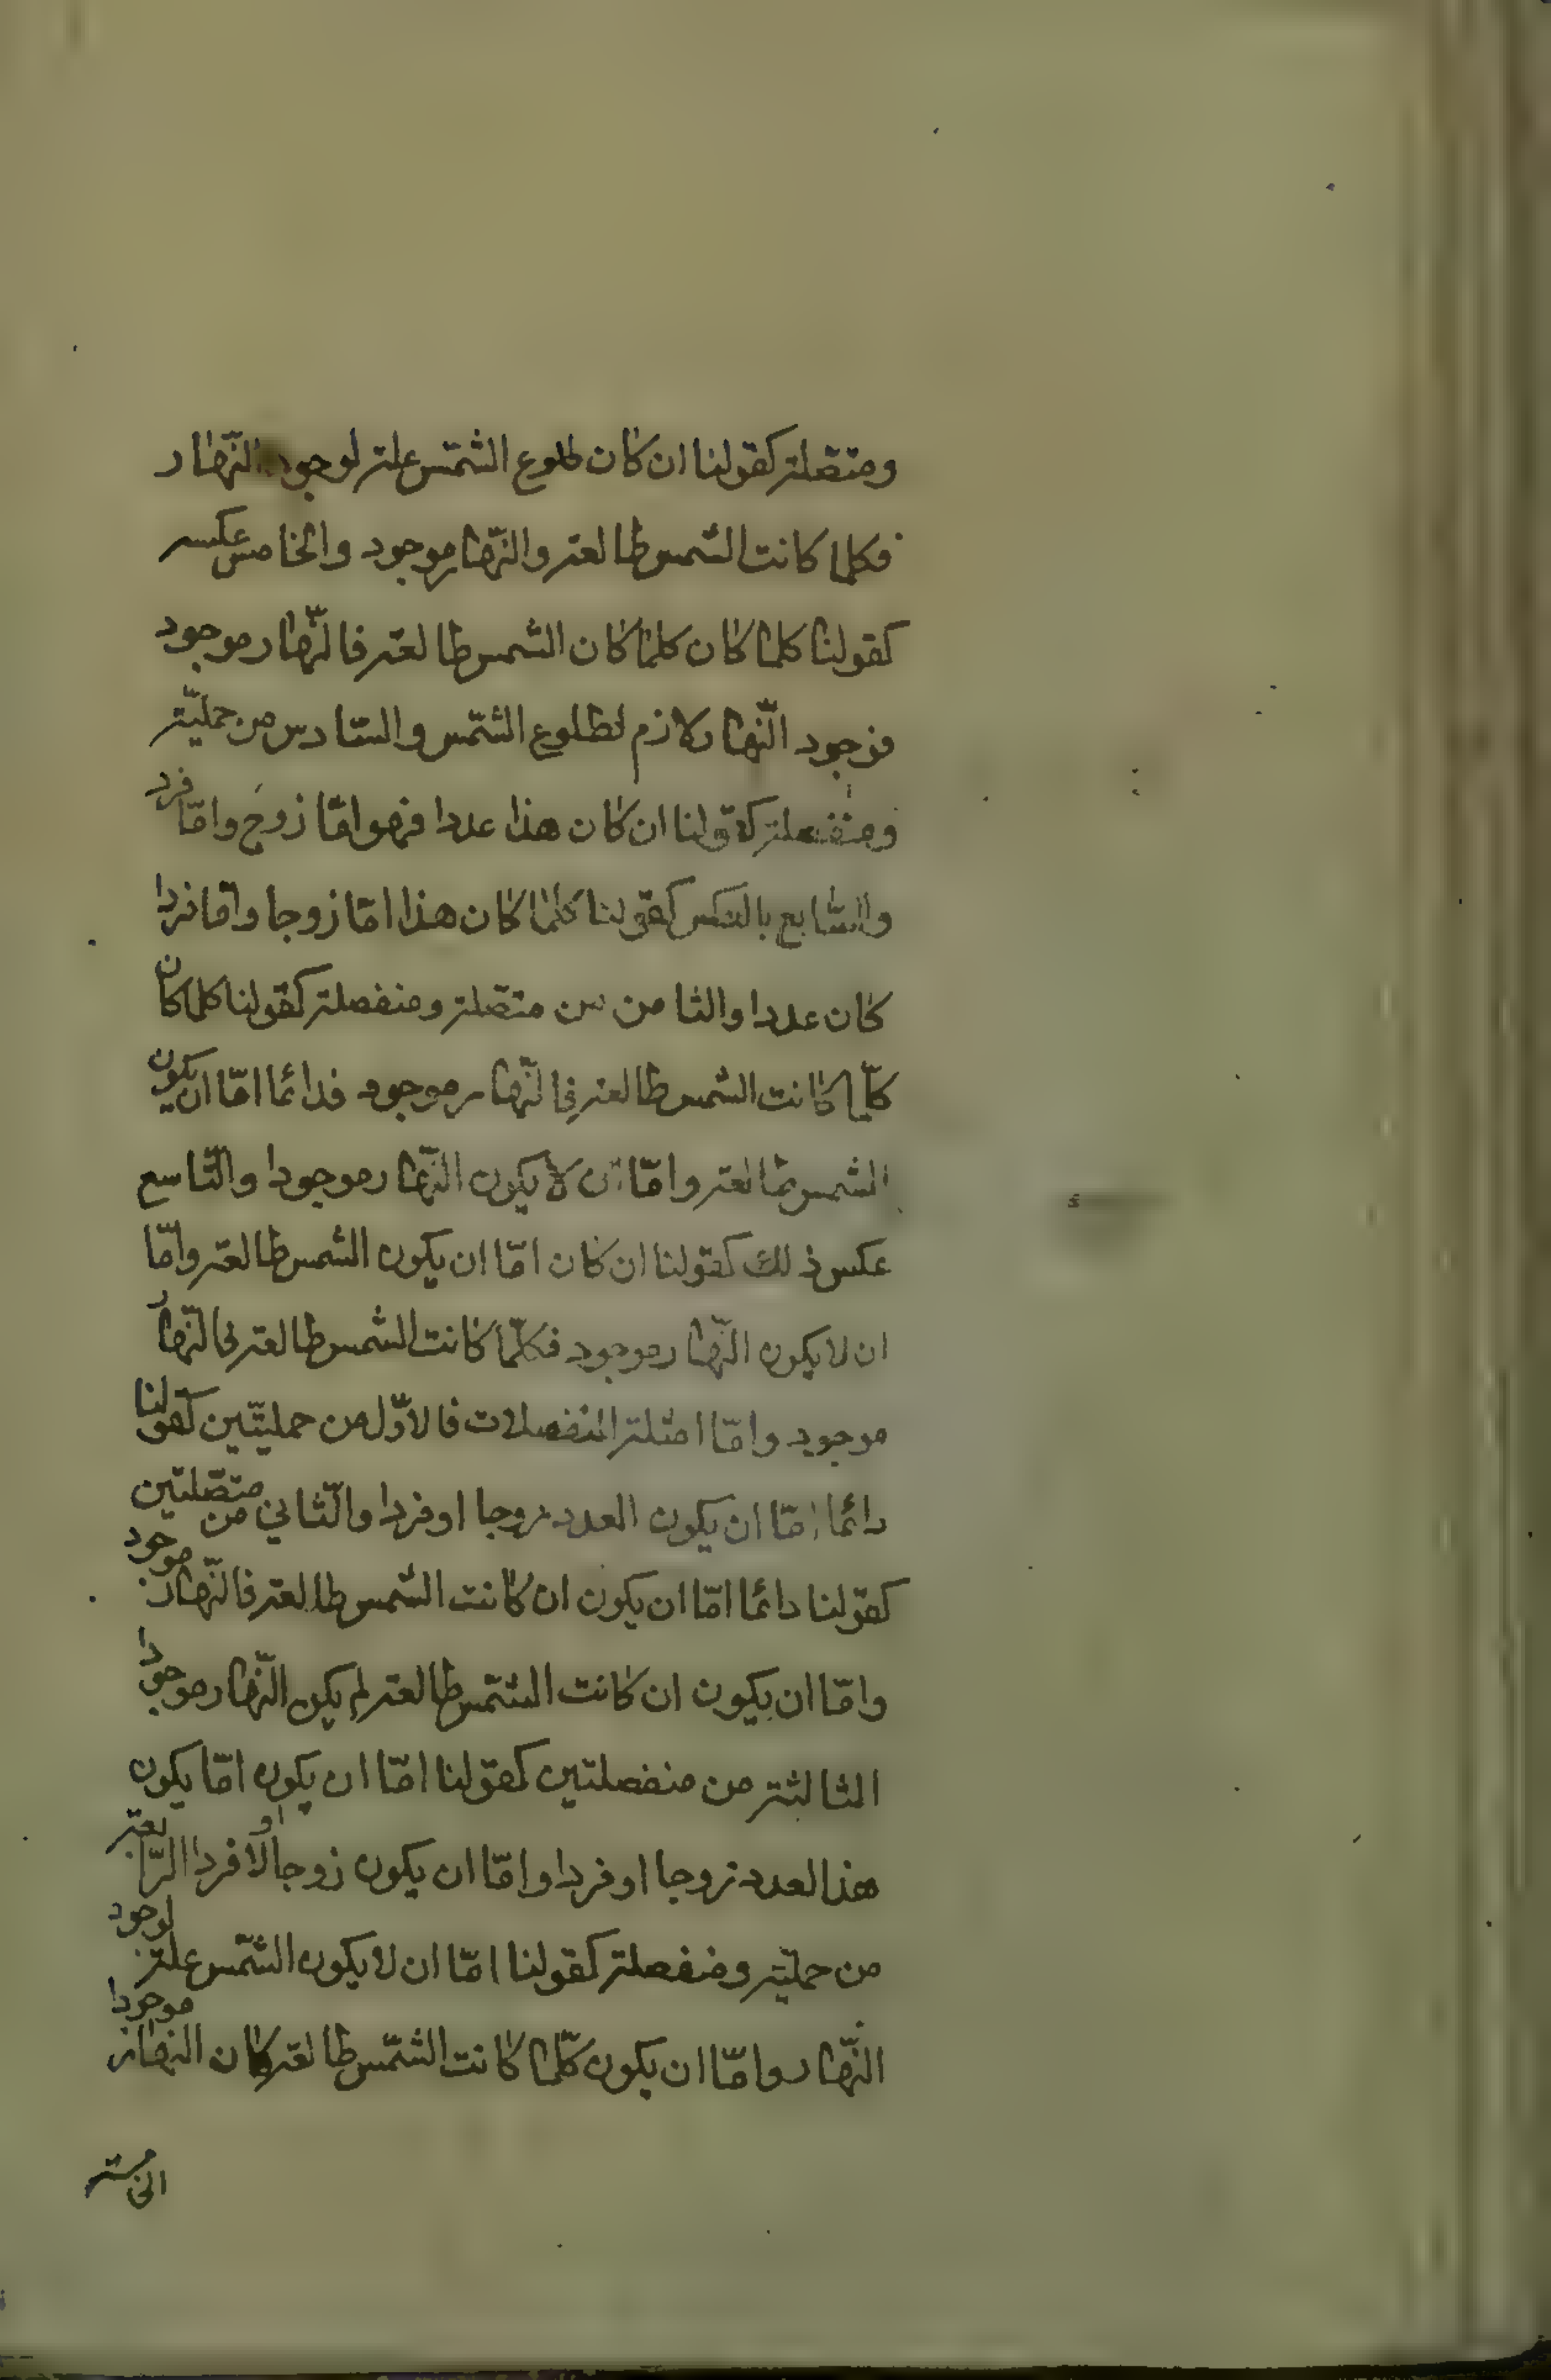 ومتصلة كقولنا ان كان طلوع الشمس علة لوجود النهار
فكلما كانت الشمس طالعة والنهار موجود والخامس عكسه
كقولنا كلما كان كلما كان الشمس طالعة فالنهار موجود
فوجود النهار لازم لطلوع الشمس والسادس من حملية
ومنفصلة كقولنا ان كان هذا عددا فهو امّا زوج وامّا فرد
والسابع بالعكس كقولنا كلما كان هذا امّا زوجا وامّا فردا
كان عددا والثامن من متصلة ومنفصلة كقولنا كلما كان
كلما كانت الشمس طالعة فالنهار موجود فدائما امّا ان يكون
الشمس طالعة وامّا ان لا يكون النهار موجودا والتاسع
عكس ذلك كقولنا ان كان امّا ان يكون الشمس طالعة وامّا
ان لا يكون النهار موجود فكلما كانت الشمس طالعة فالنهار
موجود وامّا امثلة المنفصلات فالاوّل من حمليتين كقولنا
دائما امّا ان يكون العدد زوجا او فردا والثاني من متصلتين
كقولنا دائما امّا ان يكون ان كانت الشمس طالعة فالنهار موجود
وامّا ان يكون ان كانت الشمس طالعة لم يكن النهار موجودا
الثالثة من منفصلتين كقولنا امّا ان يكون امّا يكون
هذا العدد زوجا او فردا وامّا ان يكون زوجا او لا فردا الرابعة
من حملية ومنفصلة كقولنا امّا ان لا يكون الشمس علة لوجود
النهار وامّا ان يكون كلما كانت الشمس طالعة كان النهار موجودا
الخامسة